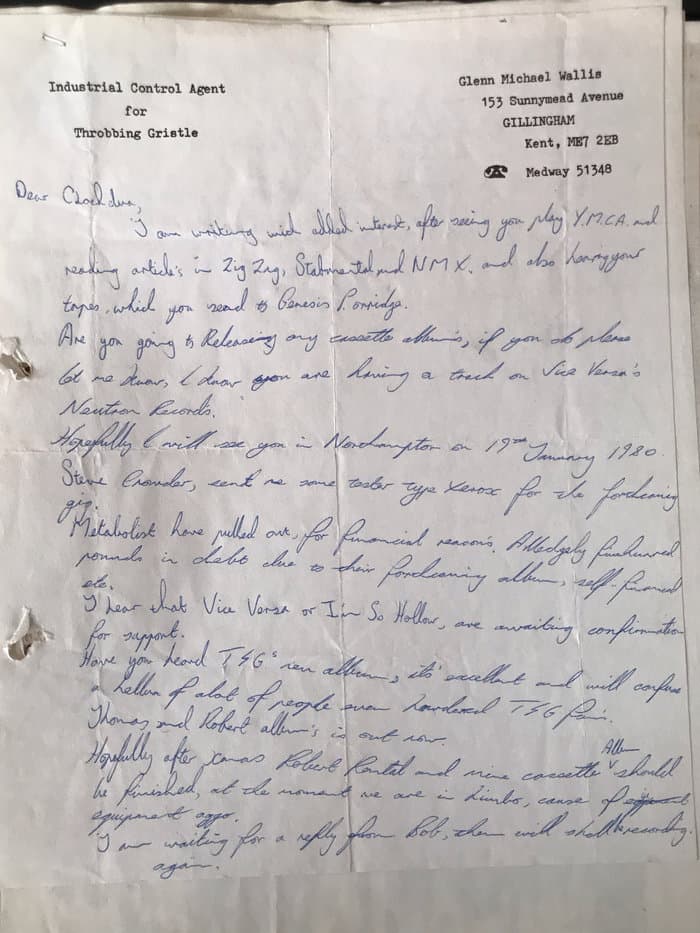 Industrial Control Agent
for
Throbbing Gristle
Glenn Michael Wallis
153 Sunnymead Avenue
GILLINGHAM
Kent, ME7 2EB
☎ Medway 51348
Dear Clock dva,
I am writing with added interest, after seeing you play Y.M.C.A. and
reading article's in Zig Zag, Stabmental, and NMX. and also hearing your
tapes, which you send to Genesis P. orridge.
Are you going to Releasing any cassette album's, if you do please
let me know, I know you are having a track on Vice Versa's
Neutron Records.
Hopefully I will see you in Northampton on 19th January 1980.
Steve sent me some tester type Xerox for the forthcoming
gig.
Metabolist have pulled out, for financial reason's. Alledgely five hundred
pounds in debt due to their forthcoming album, self-financed
etc.
I hear that Vice Versa or I'm So Hollow, are awaiting confirmation
for support.
Have you heard T.G's new album, its' excellent and will confuse
a hellva of alot of people even hardened TG fan's.
Thomas and Robert album's is out now.
Hopefully after xmas Robert Rental and mine cassette Album should
be finished, at the moment we are in limbo, cause of
equipment aggo.
I am waiting for a reply from Bob, then will start recording
again.